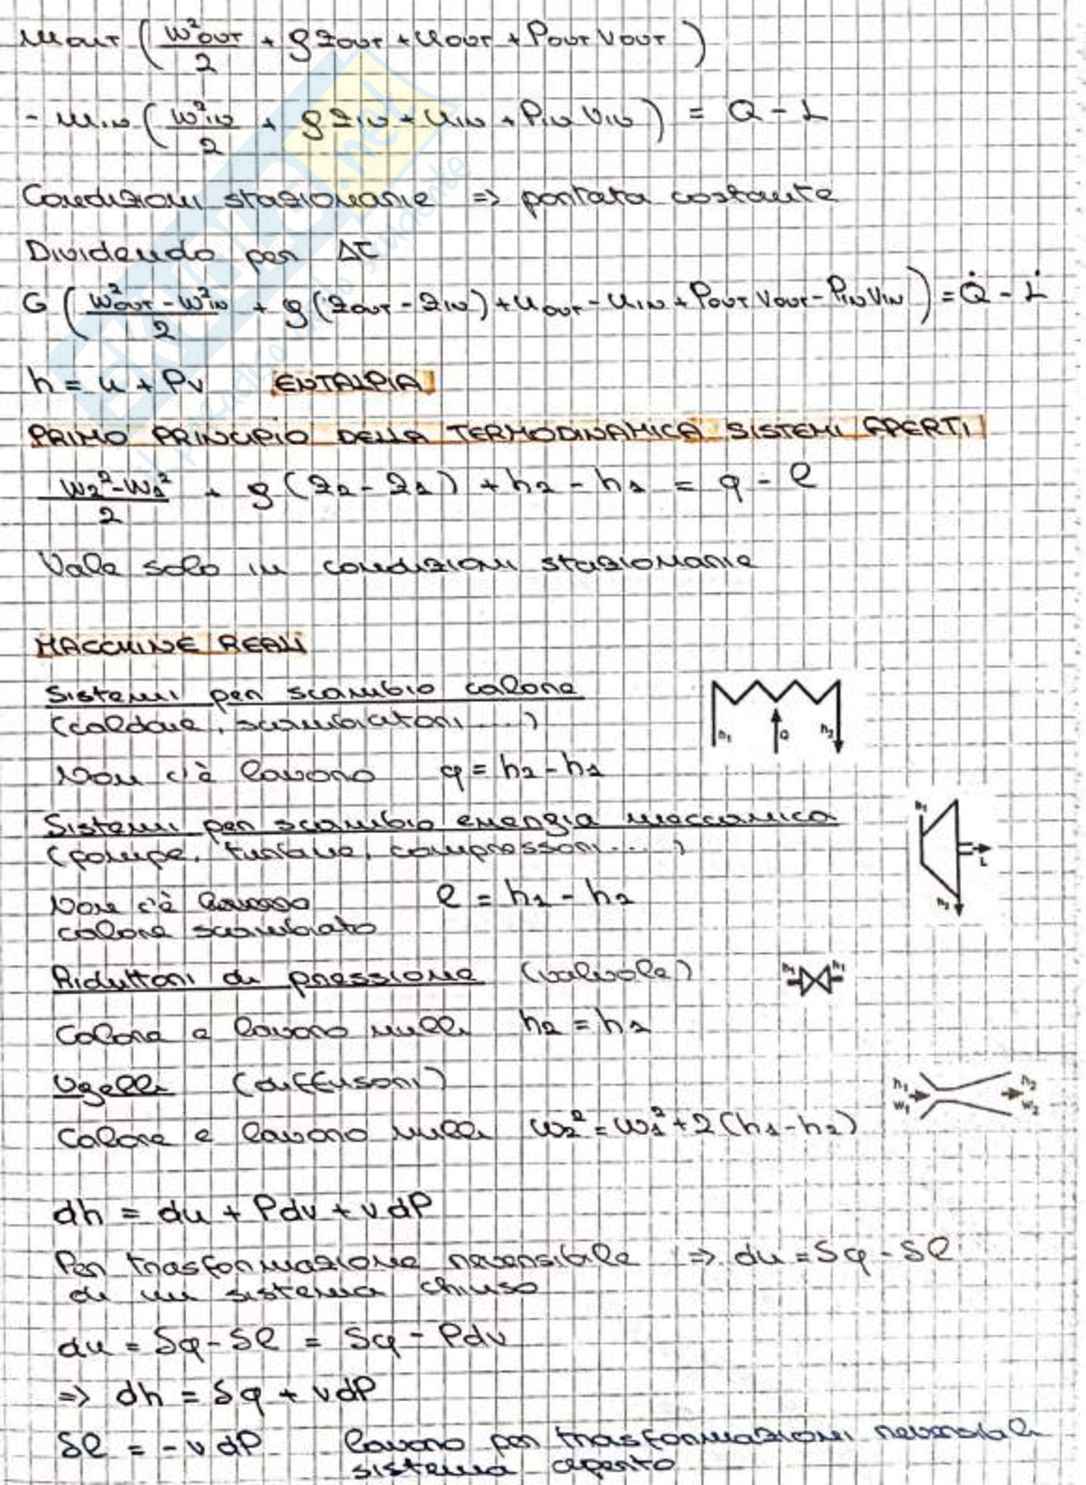 m_OUT (w²_OUT/2 + g z_OUT + u_OUT + P_OUT v_OUT)
- m_IN (w²_IN/2 + g z_IN + u_IN + P_IN v_IN) = Q - L
Condizioni stazionarie => portata costante
Dividendo per Δτ
G (w²_OUT - w²_IN/2 + g(z_OUT - z_IN) + u_OUT - u_IN + P_OUT v_OUT - P_IN v_IN) = Q̇ - L̇
h = u + Pv ENTALPIA
PRIMO PRINCIPIO DELLA TERMODINAMICA SISTEMI APERTI
w₂² - w₁²/2 + g (z₂ - z₁) + h₂ - h₁ = q - l
Vale solo in condizioni stazionarie
MACCHINE REALI
Sistemi per scambio calore
(caldaie, scambiatori ....)
h₁ Q h₂
Non c'è lavoro q = h₂ - h₁
Sistemi per scambio energia meccanica
(pompe, turbine, compressori ....)
h₁ L h₂
Non c'è lavoro l = h₁ - h₂
calore scambiato
Riduttori di pressione (valvole)
h₁ h₁
Calore e lavoro nulli h₂ = h₁
Ugelli (diffusori)
h₁ w₁ h₂ w₂
Calore e lavoro nulli w₂² = w₁² + 2(h₁ - h₂)
dh = du + Pdv + vdP
Per trasformazione reversibile => du = δq - δl
di un sistema chiuso
du = δq - δl = δq - Pdv
=> dh = δq + vdP
δl = - vdP lavoro per trasformazioni reversibili
sistema aperto